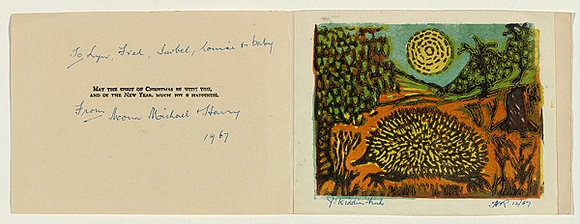 To Lyn, Fred, Isobel, Louise & baby
MAY THE SPIRIT OF CHRISTMAS BE WITH YOU,
AND IN THE NEW YEAR, MUCH JOY & HAPPINESS.
From Mona Michael & Harry
1967
12/67